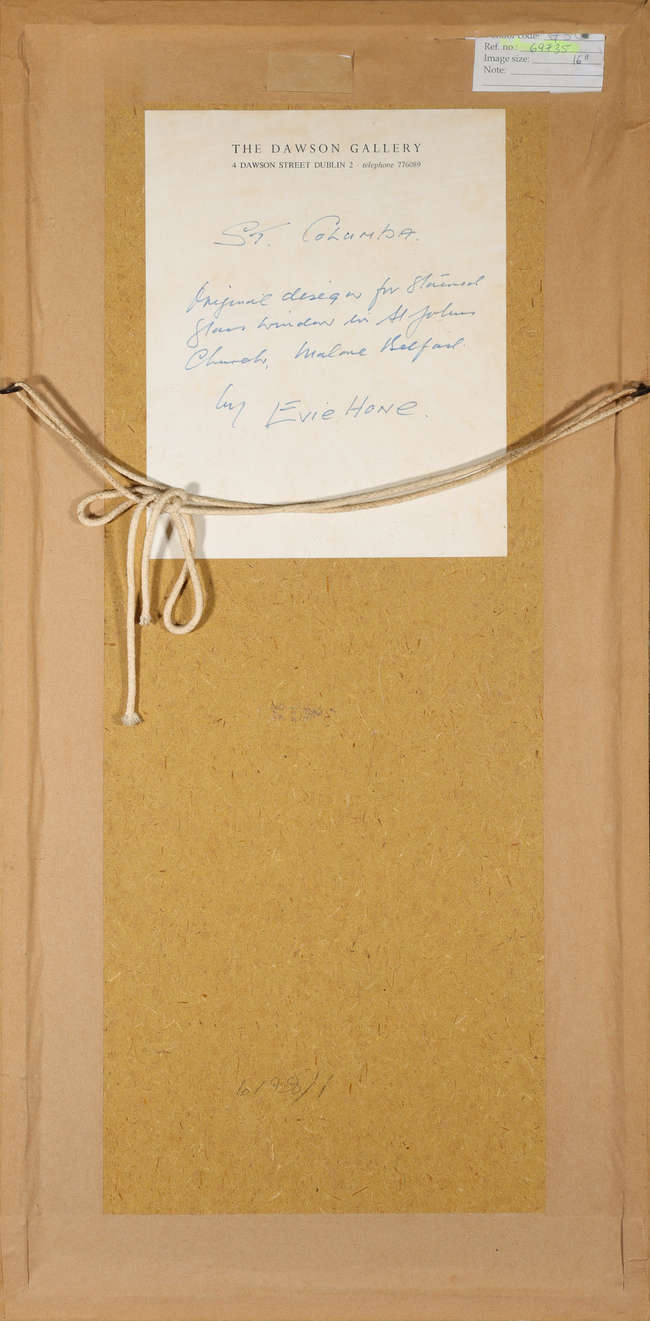 Ref. no.: 69735
Image size: 16"
Note:
THE DAWSON GALLERY
4 DAWSON STREET DUBLIN 2 - telephone 776089
St. Columba.
Original design for Stained
Glass window in St Johns
Church, Malone Belfast.
by Evie Hone.
6198/1